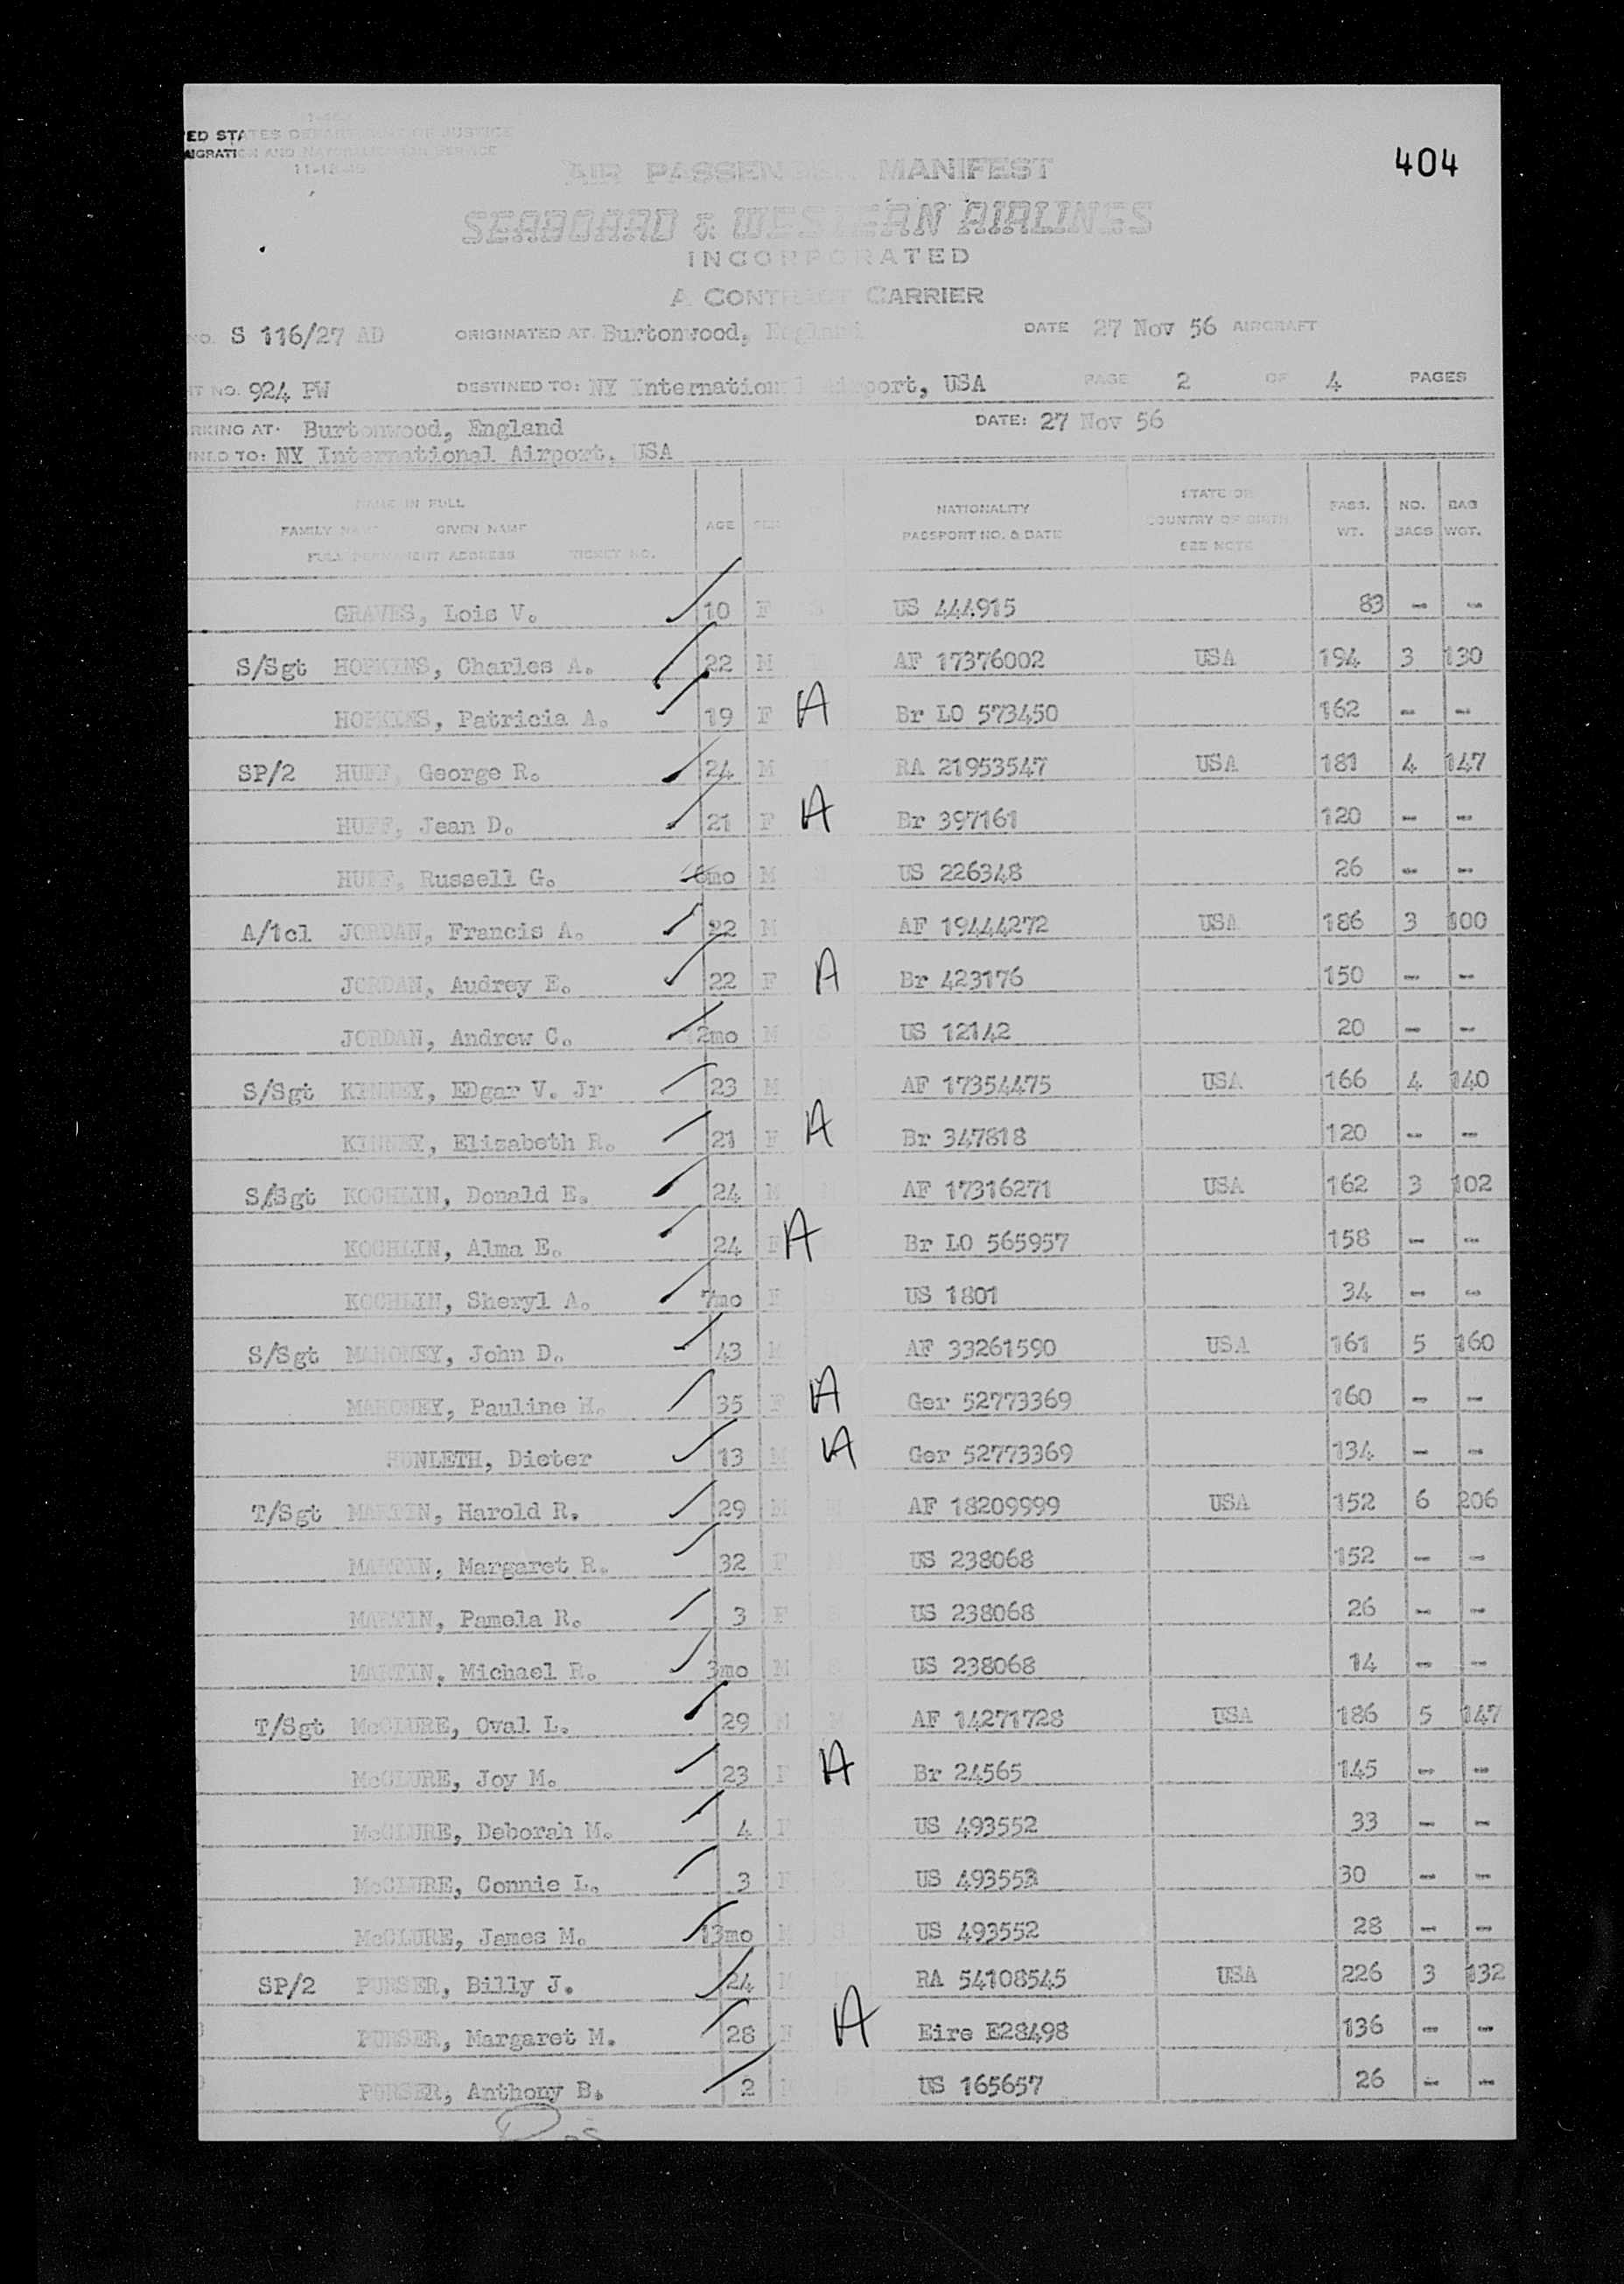 404
ED STATES DEPARTMENT OF JUSTICE
MIGRATION AND NATURALIZATION SERVICE
AIR PASSENGER MANIFEST
SEABOARD & WESTERN AIRLINES
INCORPORATED
A CONTRACT CARRIER
NO. S 116/27 AD ORIGINATED AT: Burtonwood, England DATE 27 Nov 56 AIRCRAFT
T NO. 924 PW DESTINED TO: NY International Airport, USA PAGE 2 OF 4 PAGES
RKING AT: Burtonwood, England DATE: 27 Nov 56
NED TO: NY International Airport, USA
NAME IN FULL
FAMILY NAME GIVEN NAME
FULL PERMANENT ADDRESS TICKET NO.
AGE
SEX
NATIONALITY
PASSPORT NO. & DATE
STATE OR
COUNTRY OF BIRTH
SEE NOTE
PASS.
WT.
NO.
BAGS
BAG
WGT.
GRAVES, Lois V. 10 F US 444915 83 - -
S/Sgt HOPKINS, Charles A. 22 M AF 17376002 USA 194 3 130
HOPKINS, Patricia A. 19 F A Br LO 573450 162 - -
SP/2 HUFF, George R. 24 M RA 21953547 USA 181 4 147
HUFF, Jean D. 21 F A Br 397161 120 - -
HUFF, Russell G. 6mo M US 226348 26 - -
A/1cl JORDAN, Francis A. 22 M AF 19444272 USA 186 3 100
JORDAN, Audrey E. 22 F A Br 423176 150 - -
JORDAN, Andrew C. 12mo M US 12142 20 - -
S/Sgt KINNEY, EDgar V. Jr 23 M AF 17354475 USA 166 4 140
KINNEY, Elizabeth R. 21 F A Br 347818 120 - -
S/Sgt KOCHLIN, Donald E. 24 M AF 17316271 USA 162 3 102
KOCHLIN, Alma E. 24 F A Br LO 565957 158 - -
KOCHLIN, Sheryl A. 7mo F US 1801 34 - -
S/Sgt MAHONEY, John D. 43 M AF 33261590 USA 161 5 160
MAHONEY, Pauline H. 35 F A Ger 52773369 160 - -
HUNLETH, Dieter 13 M A Ger 52773369 134 - -
T/Sgt MARTIN, Harold R. 29 M M AF 18209999 USA 152 6 206
MARTIN, Margaret R. 32 F M US 238068 152 - -
MARTIN, Pamela R. 3 F US 238068 26 - -
MARTIN, Michael R. 3mo M US 238068 14 - -
T/Sgt McCLURE, Oval L. 29 M M AF 14271728 USA 186 5 147
McCLURE, Joy M. 23 F A Br 24565 145 - -
McCLURE, Deborah M. 4 F US 493552 33 - -
McCLURE, Connie L. 3 F US 493552 30 - -
McCLURE, James M. 13mo M S US 493552 28 - -
SP/2 PURSER, Billy J. 24 M M RA 54108545 USA 226 3 132
PURSER, Margaret M. 28 F A Eire E28498 136 - -
PURSER, Anthony B. 2 US 165657 26 - -